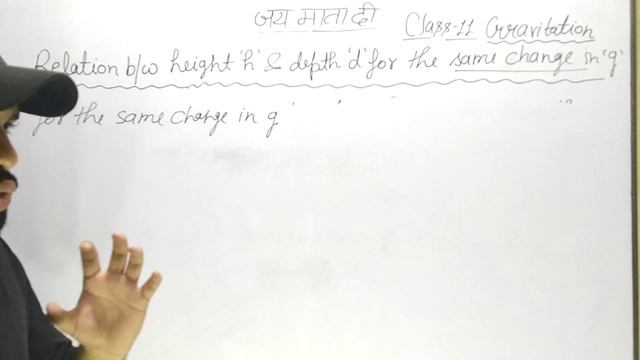 जय माता दी
Class-11 Gravitation
Relation b/w height 'h' & depth 'd' for the same change in 'g'
for the same change in g